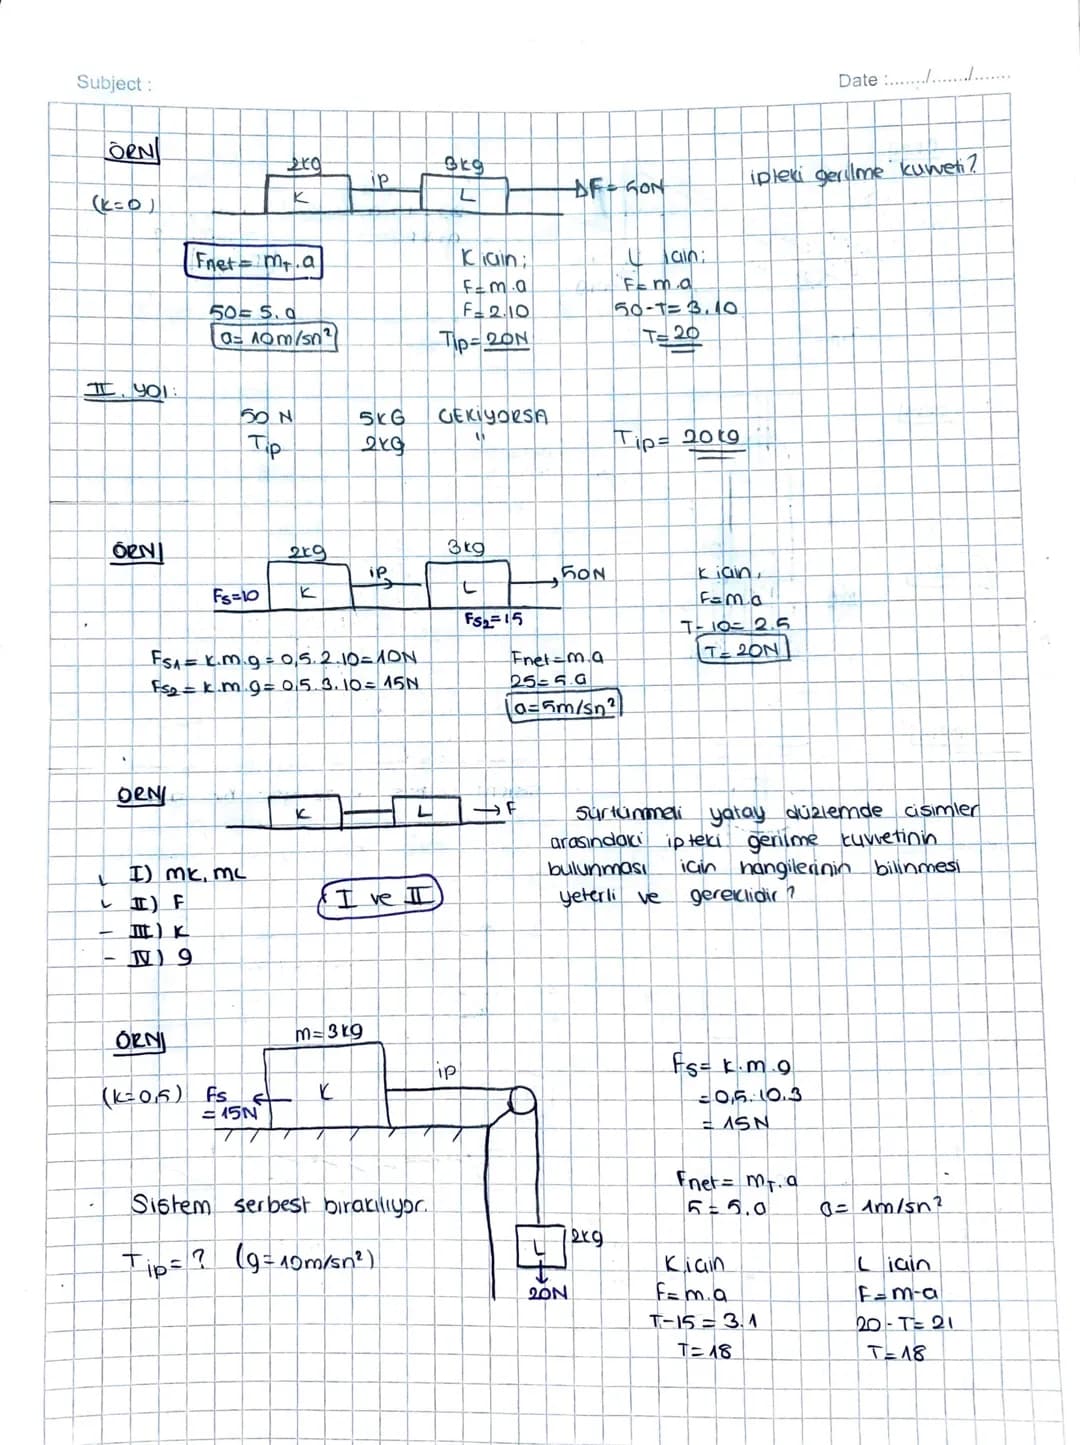 Subject :
Date :......./......./.......
ÖRN
2kg
3kg
ip
K
L
F=50N
ipteki gerilme kuvveti?
(k=0)
Fnet= mT.a
50= 5.a
a= 10m/sn²
K için;
F=m.a
F=2.10
Tip=20N
L için;
F=m.a
50-T=3.10
T=20
II. yol:
50 N 5KG ÇEKİYORSA
Tip 2kg "
Tip= 20kg
ÖRN
2kg
3kg
ip
K
L
50N
Fs=10
Fs2=15
Fs1= k.m.g=0,5.2.10=10N
Fs2= k.m.g=0,5.3.10=15N
Fnet=m.a
25=5.a
a=5m/sn²
K için,
F=m.a
T-10=2.5
T=20N
ÖRN
K
L
F
Sürtünmeli yatay düzlemde cisimler
arasındaki ipteki gerilme kuvvetinin
bulunması için hangilerinin bilinmesi
yeterli ve gereklidir?
I) mK, mL
II) F
- III) K
- IV) g
I ve II
ÖRN
m=3kg
K
ip
(k=0,5)
Fs
=15N
Fs= k.m.g
=0,5.10.3
= 15N
Sistem serbest bırakılıyor.
Tip=? (g=10m/sn²)
L
2kg
20N
Fnet= mT.a
5=5.a a= 1m/sn²
K için
F=m.a
T-15=3.1
T=18
L için
F=m-a
20-T=21
T=18